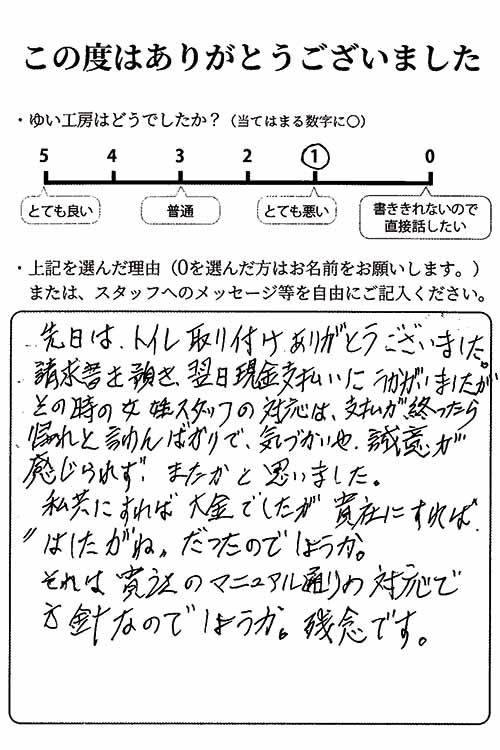 この度はありがとうございました
・ゆい工房はどうでしたか？（当てはまる数字に○）
5 4 3 2 1 0
とても良い 普通 とても悪い 書ききれないので
直接話したい
・上記を選んだ理由（0を選んだ方はお名前をお願いします。）
または、スタッフへのメッセージ等を自由にご記入ください。
先日は、トイレ取り付けありがとうございました。
請求書を頂き、翌日現金支払いにうかがいましたが
その時の女姓スタッフの対応は、支払が終ったら
帰れと言わんばかりで、気づかいや、誠意が
感じられず、またかと思いました。
私共にすれば大金でしたが貴社にすれば
〃はしたがね〃だったのでしょうか。
それは貴社のマニュアル通りの対応で
方針なのでしょうか。残念です。